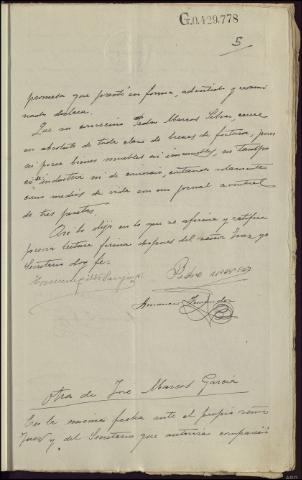 G.0,429,778
5
promesa que prestó en forma, advertido y exami
nado declara.
Que su convecino Pedro Marcos Silva, carece
en absoluto de toda clase de bienes de fortuna, pues
ni posee bienes muebles ni inmuebles, ni tampoco
es industria ni de comercio, contando solamente
como medios de vida con un jornal eventual
de tres pesetas.
Así lo dijo en lo que se afirma y ratifica
previa lectura firma después del señor Juez yo
Secretario doy fe.
Pedro
Amancio Fernández
Otra de José Marcos García
En la misma fecha ante el propio señor
Juez y del Secretario que autoriza compareció